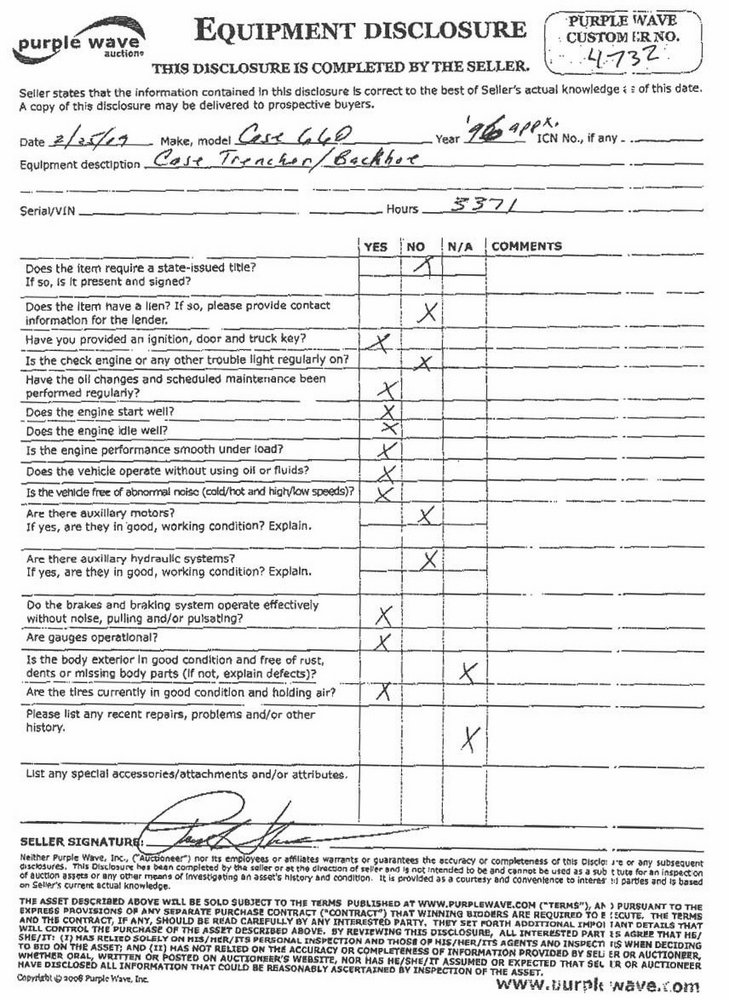 purple wave
auction
EQUIPMENT DISCLOSURE
PURPLE WAVE
CUSTOMER NO.
4732
THIS DISCLOSURE IS COMPLETED BY THE SELLER.
Seller states that the information contained in this disclosure is correct to the best of Seller's actual knowledge as of this date.
A copy of this disclosure may be delivered to prospective buyers.
Date 2/25/09 Make, model Case 660 Year '96 appx. ICN No., if any
Equipment desctiption Case Trencher/Backhoe
Serial/VIN Hours 3371
YES NO N/A COMMENTS
Does the item require a state-issued title? X
If so, is it present and signed?
Does the item have a lien? If so, please provide contact
information for the lender. X
Have you provided an ignition, door and truck key? X
Is the check engine or any other trouble light regularly on? X
Have the oil changes and scheduled maintenance been
performed regularly? X
Does the engine start well? X
Does the engine idle well? X
Is the engine performance smooth under load? X
Does the vehicle operate without using oil or fluids? X
Is the vehicle free of abnormal noise (cold/hot and high/low speeds)? X
Are there auxiliary motors? X
If yes, are they in good, working condition? Explain.
Are there auxiliary hydraulic systems? X
If yes, are they in good, working condition? Explain.
Do the brakes and braking system operate effectively
without noise, pulling and/or pulsating? X
Are gauges operational? X
Is the body exterior in good condition and free of rust,
dents or missing body parts (if not, explain defects)? X
Are the tires currently in good condition and holding air? X
Please list any recent repairs, problems and/or other
history. X
List any special accessories/attachments and/or attributes.
SELLER SIGNATURE:
Neither Purple Wave, Inc., ("Auctioneer") nor its employees or affiliates warrants or guarantees the accuracy or completeness of this Disclosure or any subsequent
disclosures. This Disclosure has been completed by the seller or at the direction of seller and is not intended to be and cannot be used as a substitute for an inspection
of auction assets or any other means of investigating an asset's history and condition. It is provided as a courtesy and convenience to interested parties and is based
on Seller's current actual knowledge.
THE ASSET DESCRIBED ABOVE WILL BE SOLD SUBJECT TO THE TERMS PUBLISHED AT WWW.PURPLEWAVE.COM ("TERMS"), AND PURSUANT TO THE
EXPRESS PROVISIONS OF ANY SEPARATE PURCHASE CONTRACT ("CONTRACT") THAT WINNING BIDDERS ARE REQUIRED TO EXECUTE. THE TERMS
AND THE CONTRACT, IF ANY, SHOULD BE READ CAREFULLY BY ANY INTERESTED PARTY. THEY SET FORTH ADDITIONAL IMPORTANT DETAILS THAT
WILL CONTROL THE PURCHASE OF THE ASSET DESCRIBED ABOVE. BY REVIEWING THIS DISCLOSURE, ALL INTERESTED PARTIES AGREE THAT HE/
SHE/IT: (I) HAS RELIED SOLELY ON HIS/HER/ITS PERSONAL INSPECTION AND THOSE OF HIS/HER/ITS AGENTS AND INSPECTORS WHEN DECIDING
TO BID ON THE ASSET; AND (II) HAS NOT RELIED ON THE ACCURACY OR COMPLETENESS OF INFORMATION PROVIDED BY SELLER OR AUCTIONEER,
WHETHER ORAL, WRITTEN OR POSTED ON AUCTIONEER'S WEBSITE, NOR HAS HE/SHE/IT ASSUMED OR EXPECTED THAT SELLER OR AUCTIONEER
HAVE DISCLOSED ALL INFORMATION THAT COULD BE REASONABLY ASCERTAINED BY INSPECTION OF THE ASSET.
Copyright © 2008 Purple Wave, Inc.
www.purplewave.com